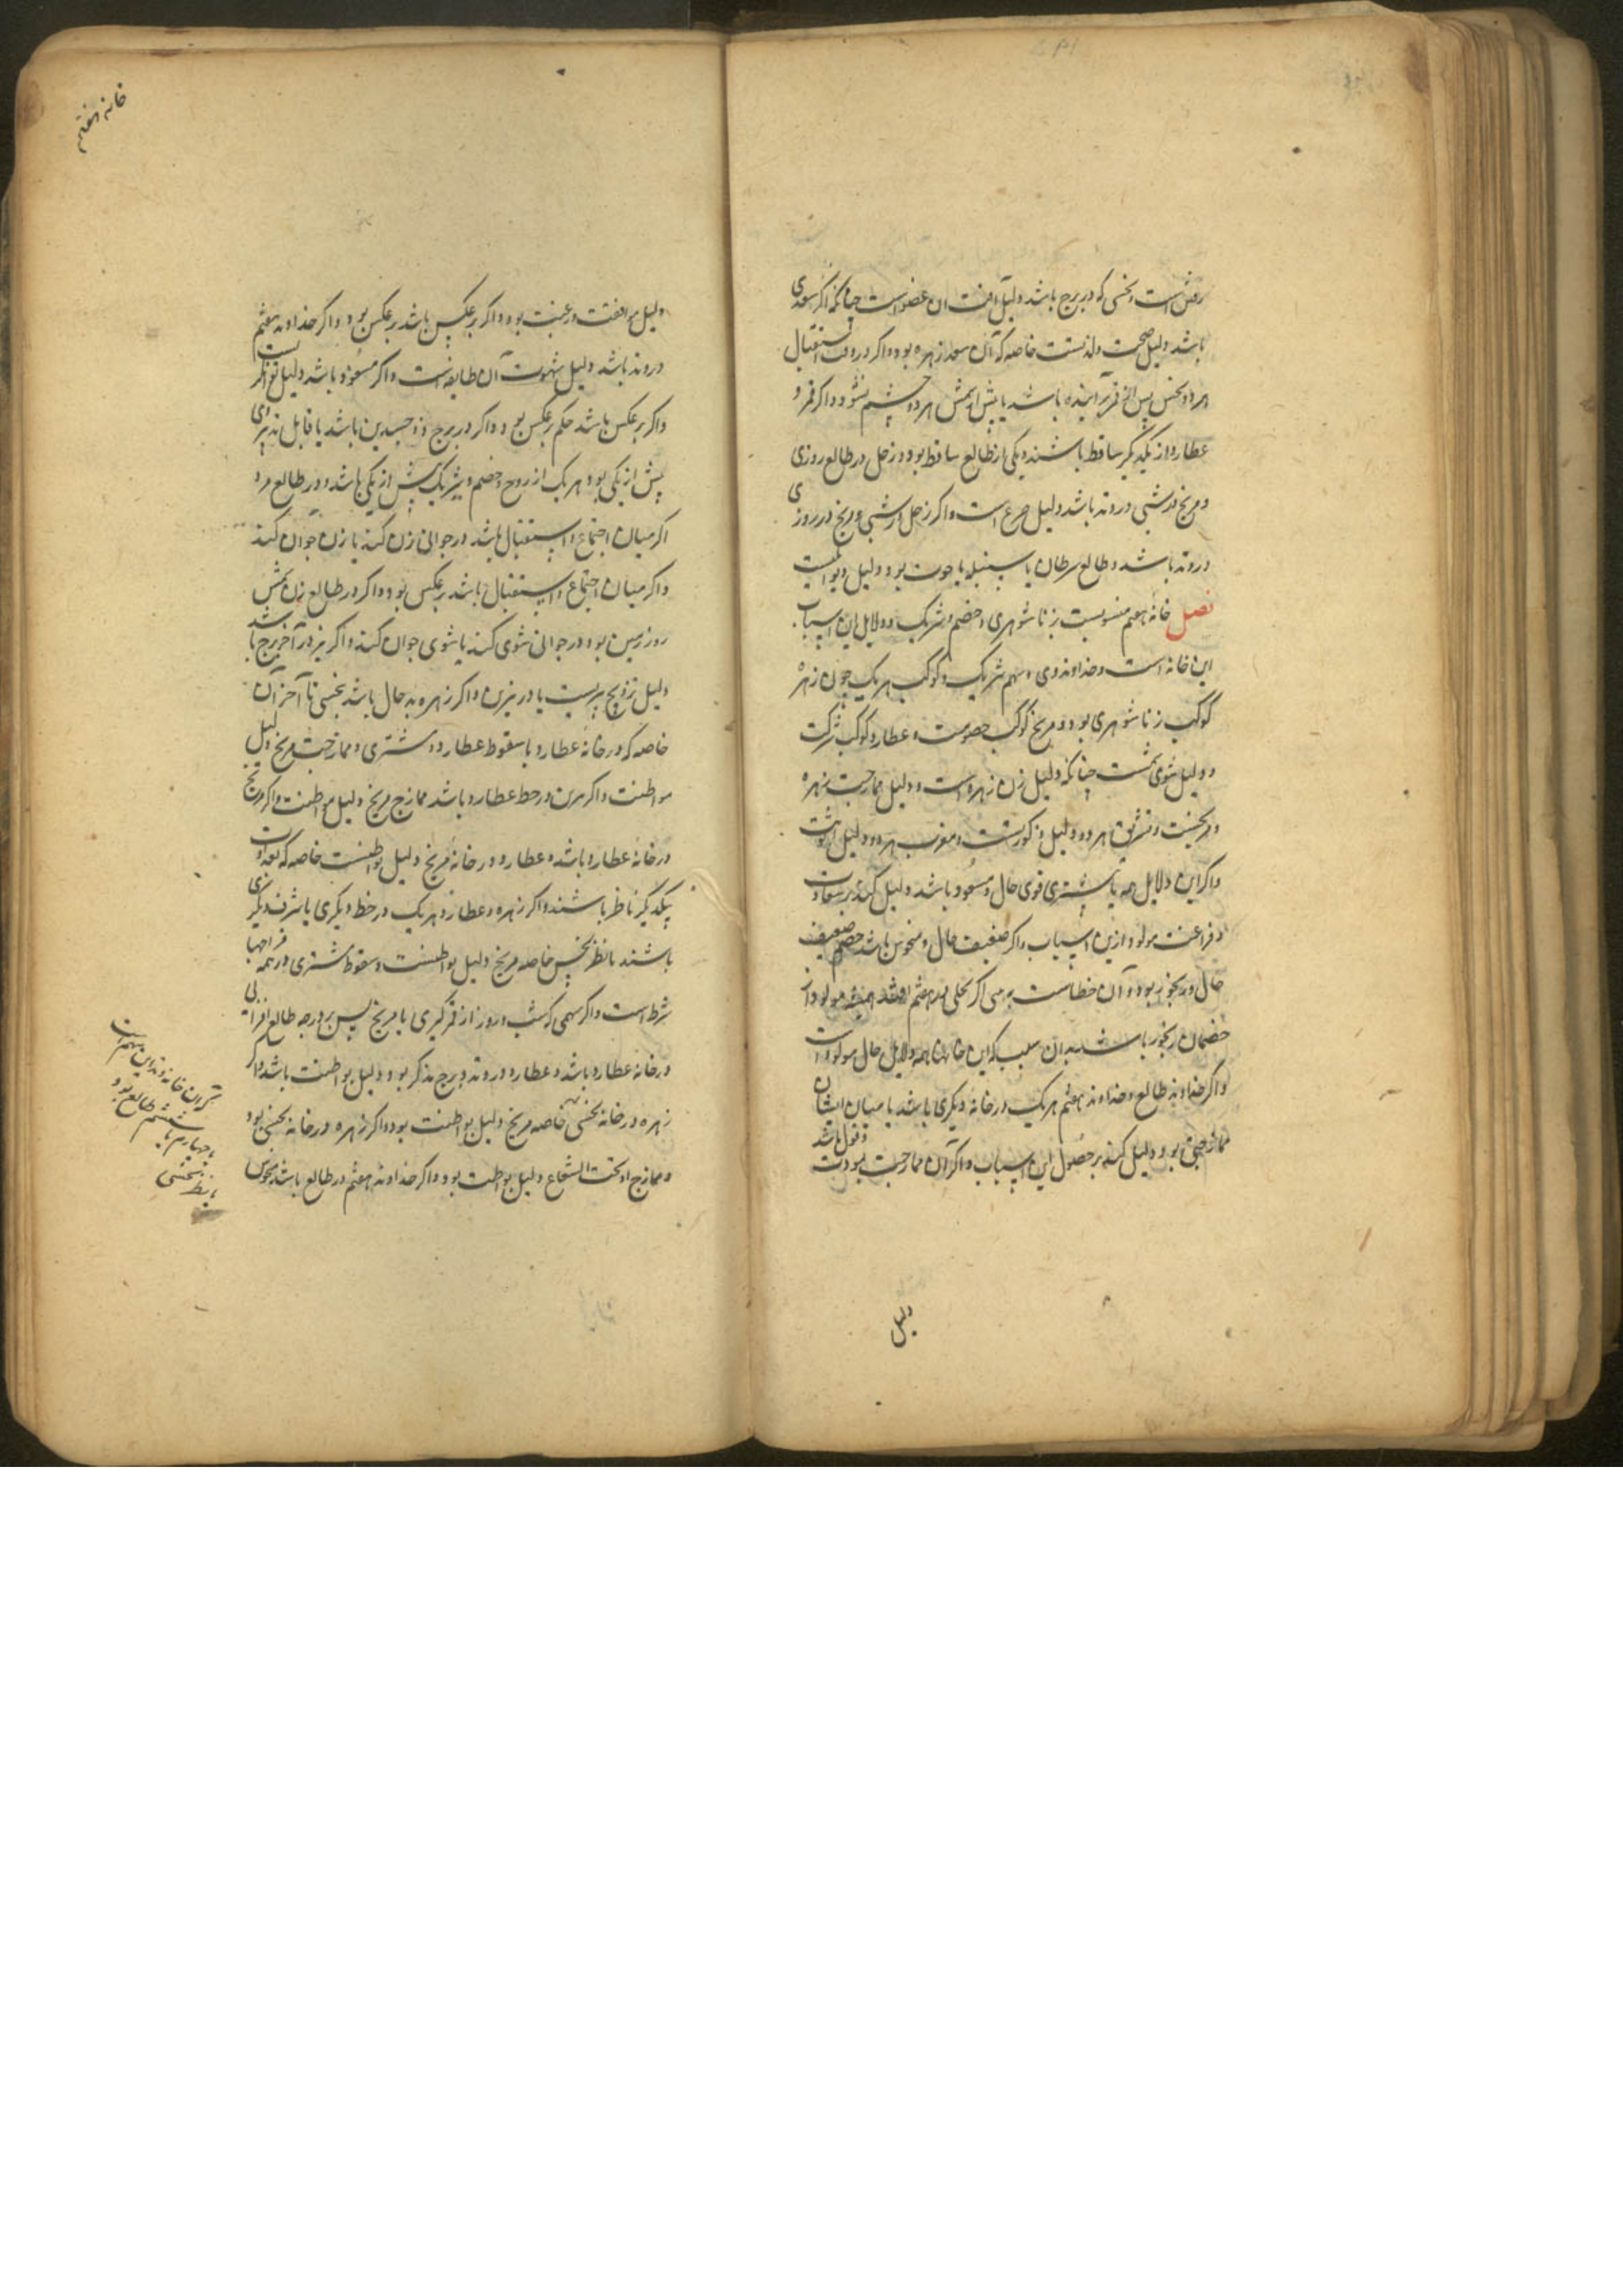 رقش است و نحسی که در برج باشد دلیل آفت آن عضو است چنانکه اگر سعدی
باشد دلیل صحت و لذتست خاصه که آن سعد زهره بود و اگر در وقت استقبال
هر دو نحس پس از قمر برآینده باشند یا پیش از شمس هر دو چشم بشود و اگر قمر و
عطارد از یکدیگر ساقط باشند و یکی از طالع ساقط بود و زحل در طالع روزی
و مریخ در شبی در وتد باشد دلیل صرع است و اگر زحل در شبی و مریخ در روزی
در وتد باشد و طالع سرطان یا سنبله یا حوت بود دلیل دیوانگیست
فصل خانه هفتم منسوبست بزناشوهری و خصم و شریک و دلایل این اسباب
این خانه است و خداوند وی و سهم شریک و کوکب هر یک چون زهره
کوکب زناشوهری بود و مریخ کوکب خصومت و عطارد کوکب شرکت
و دلیل شوی شمست چنانکه دلیل زن زهره است و دلیل ممازجت زهره
و مریخست و مشرق هر دو دلیل ذکورتست و مغرب هر دو دلیل انوثت
و اگر این دلایل همه یا بیشتری قوی حال و مسعود باشد دلیل کند بر سعادت
و فراغت مولود ازین اسباب و اگر ضعیف حال و منحوس باشد خصم ضعیف
حال و رنجور بود و آن خطاست چه اگر هفتم مولود از
خصمان رنجور باشد بدان سبب که این خانها همه دلایل حال مولود است
و اگر خداوند طالع و خداوند هفتم هر یک در خانه دیگری باشد یا میان ایشان
ممازجتی بود دلیل کند بر حصول این اسباب و اگر آن ممازجت بمودت و قبول باشد
دلیل
خانه هفتم
دلیل موافقت و رغبت بود و اگر برعکس باشد برعکس بود و اگر خداوند هفتم
در وتد باشد دلیل شهوت آن طایفه است و اگر مسعود باشد دلیل توانگریست
و اگر برعکس باشد حکم برعکس بود و اگر در برج ذوجسدین باشد یا قابل تدبیر وی
بیش از یکی بود هر یک از زوج و خصم و شریک بیش از یکی باشد و در طالع مرد
اگر میان اجتماع و استقبال باشد در جوانی زن کند یا زن جوان کند
و اگر میان اجتماع و استقبال باشد برعکس بود و اگر در طالع زن شمس
روز زمین بود در جوانی شوی کند یا شوی جوان کند و اگر نیز در آخر برج باشد
دلیل تزویج پریست یا در پیری و اگر زهره بد حال باشد بنحسی تا آخر آن
خاصه که در خانه عطارد با سقوط عطارد و مشتری و ممازجت مریخ دلیل
مواطنت و اگر مرن در حط عطارد باشد ممازج مریخ دلیل مواطنت و اگر مریخ
در خانه عطارد باشد و عطارد در خانه مریخ دلیل بواطنست خاصه که بعداوت
یکدیگر ناظر باشند و اگر زهره و عطارد هر یک در خط دیگری یا شرف دیگری
باشند با نظر نحس خاصه مریخ دلیل بواطنست و سقوط مشتری در همه مزاجها
شرط است و اگر سهمی که شب و روز از قمر گیری تا مریخ پس بر درجه طالع افزایی
در خانه عطارد باشد و عطارد در وتد و برج مذکر بود دلیل بواطنت باشد و اگر
زهره در خانه نحسی خاصه مریخ دلیل بواطنت بود و اگر زهره در خانه نحسی بود
و ممازج او تحت الشعاع دلیل بواطنت بود و اگر خداوند هفتم در طالع باشد منحوس
قران خانه وتد این سهم است
با چهارم یا ششم طالع بود
یا بنظر نحسی